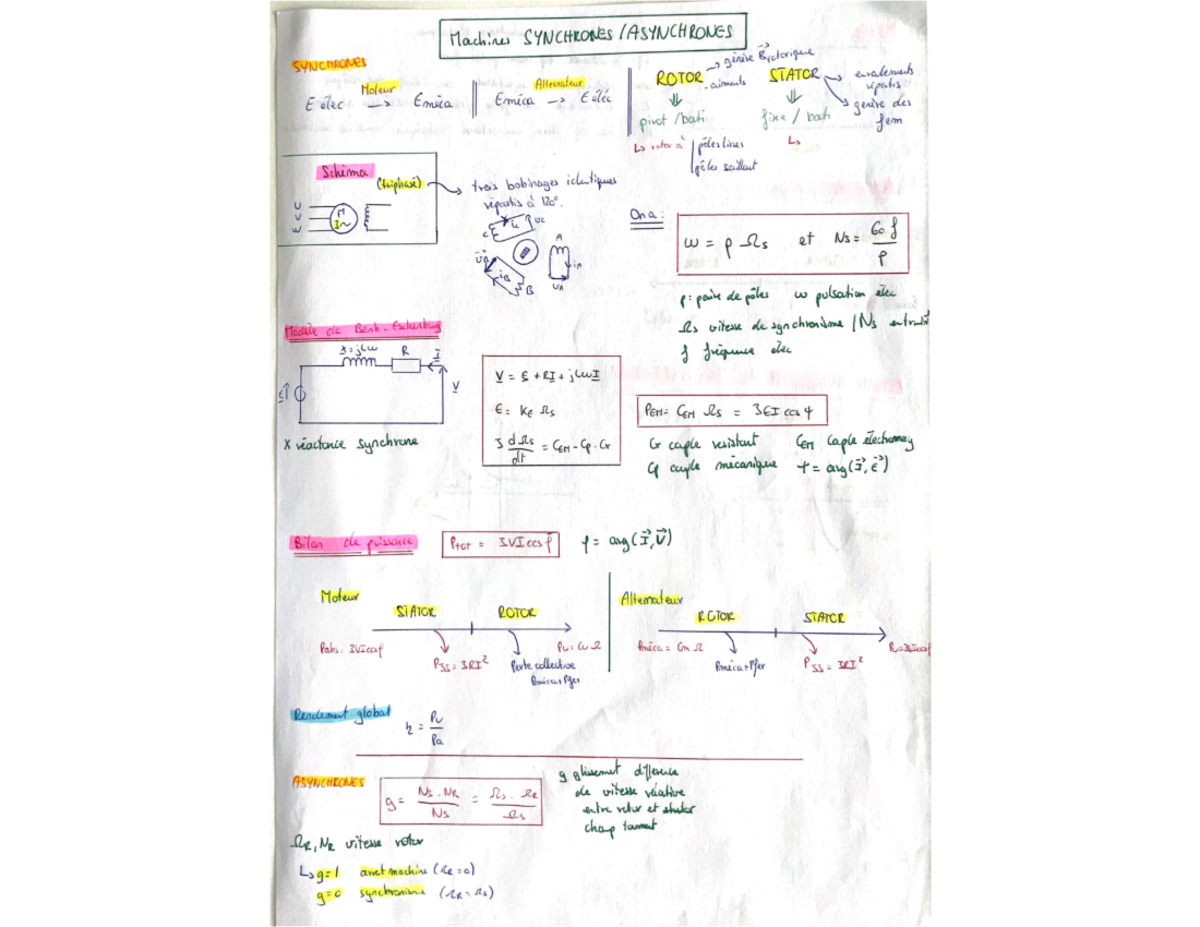 Machines SYNCHRONES / ASYNCHRONES
SYNCHRONES
Moteur
E élec → Eméca
Alternateur
Eméca → E élec
ROTOR → génère B rotorique
- aimants
⇓
pivot / bati
↳ rotor à | pôles lisses
pôles saillant
STATOR → enroulements répartis
→ génère des fem
⇓
fixe / bati
↳
Schéma
(triphasé) → trois bobinages identiques
répartis à 120°.
U
V
W
M
3~
C
ic
UC
A
iA
UA
UB
iB
B
On a :
ω = p Ωs et Ns = 60 f / p
p : paire de pôles ω pulsation élec
Ωs vitesse de synchronisme / Ns en tr/min
f fréquence élec
Modèle de Behn-Eschenburg
X = jLω R I
E V
X réactance synchrone
V = E + RI + jLωI
E = KE Ωs
J dΩs/dt = CEM - Cp - Cr
PEM = CEM Ωs = 3EI cos ψ
Cr couple resistant CEM couple électromag
Cp couple mécanique ψ = arg(I, E)
Bilan de puissance
PTOT = 3VI cos φ φ = arg(I, V)
Moteur
STATOR ROTOR
Pabs = 3VI cos φ
PJS = 3RI²
Perte collective
Pméca + Pfer
Pu = Cu Ω
Alternateur
ROTOR STATOR
Pméca = Cm Ω
Pméca + Pfer
PJS = 3RI²
Pu = 3VI cos φ
Rendement global
η = Pu / Pa
ASYNCHRONES
g = Ns - NR / Ns = Ωs - ΩR / Ωs
g glissement différence
de vitesse relative
entre rotor et stator
champ tournant
ΩR, NR vitesse rotor
↳ g = 1 arret machine (ΩR = 0)
g = 0 synchronisme (ΩR = Ωs)